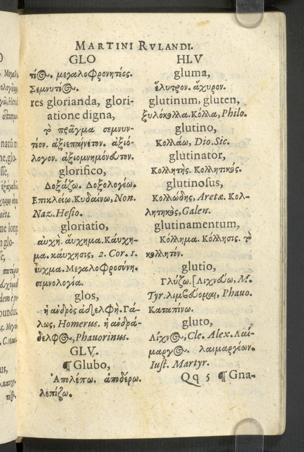 MARTINI RVLANDI.
GLO
τιος. μεγαλοφρονητέος.
Σεμνυτέος.
res glorianda, glori-
atione digna,
τὸ πρᾶγμα σεμνυν-
τέον. ἀξιεπαίνετον. ἀξιό-
λογον. ἀξιομνημόνευτον.
glorifico,
Δοξάζω. Δοξολογέω.
Ἐπικλείω. Κυδαίνω, Non.
Naz. Hesio.
gloriatio,
αυχή. αύχημα. Κάυχη-
μα. καύχησις, 2. Cor. 1.
έυγμα. Μεγαλοφροσύνη.
σεμνολογία.
glos,
ἡ ἀνδρὸς ἀδελφή. Γά-
λως, Homerus. ἡ ἀνδρά-
δελφος, Phauorinus.
GLV.
¶ Glubo,
Ἀπολέπω. ἀποδέρω.
λεπίζω.
HLV
gluma,
ἔλυτρον. ἄχυρον.
glutinum, gluten,
ξυλόκολλα. Κόλλα, Philo.
glutino,
Κολλάω, Dio. Sic.
glutinator,
Κολλητής. Κολλητικός.
glutinosus,
Κολλώδης, Aretæ. Κολ-
λητικός, Galen.
glutinamentum,
Κόλλημα. Κόλλησις. τὸ
κολλητὸν.
glutio,
Γλύζω. Λιχνεύω, M.
Tyr. Phauo.
Καταπίνω.
gluto,
Λίχνος, Cle. Alex. Λαί-
μαργος. λαιμαργέων.
Iust. Martyr.
Qq 5 ¶ Gna-